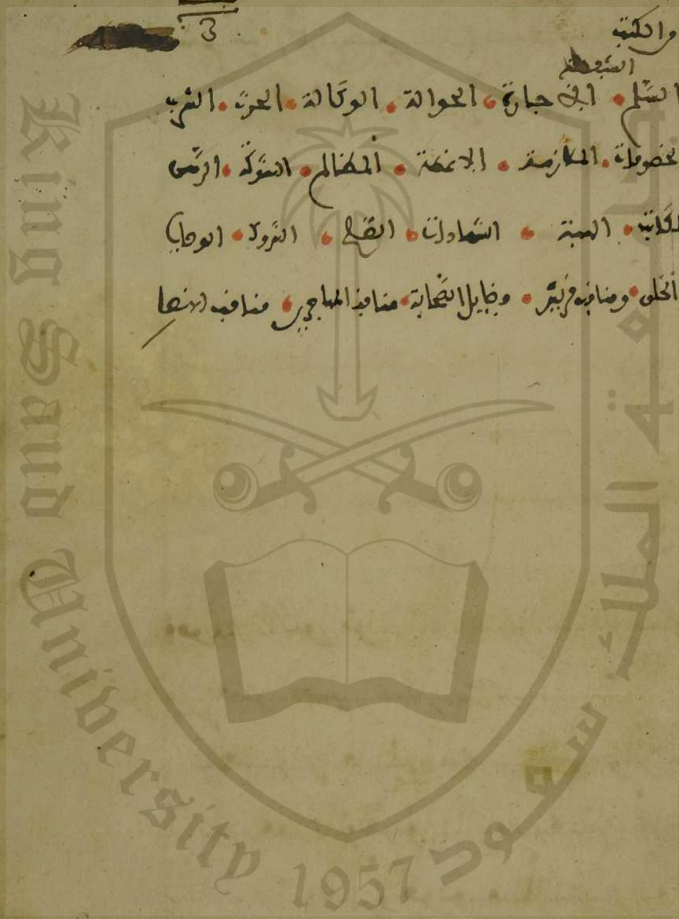 3
من الكتب
الشفعة
السلم • الاجارة • الحوالة • الوكالة • الحرث • الشرب
لخصومات • الملازمة • الالقطة • المظالم • الشركة • الرهن
لمكاتب • الهبة • الشهادات • الصلح • الشروط • الوصايا
الخلق • ومناقب قريش • وفضايل الصحابة • مناقب المهاجرين • مناقب الانصا
King Saud University
جامعة الملك سعود
1957